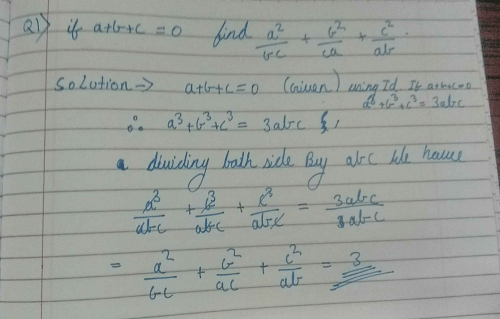 Q1) if a+b+c = 0 find a²/bc + b²/ca + c²/ab .
Solution → a+b+c = 0 (Given) using Id. If a+b+c=0
a³+b³+c³ = 3abc
∴ a³+b³+c³ = 3abc
dividing both side By abc We have
a³/abc + b³/abc + c³/abc = 3abc/abc
= a²/bc + b²/ac + c²/ab = 3